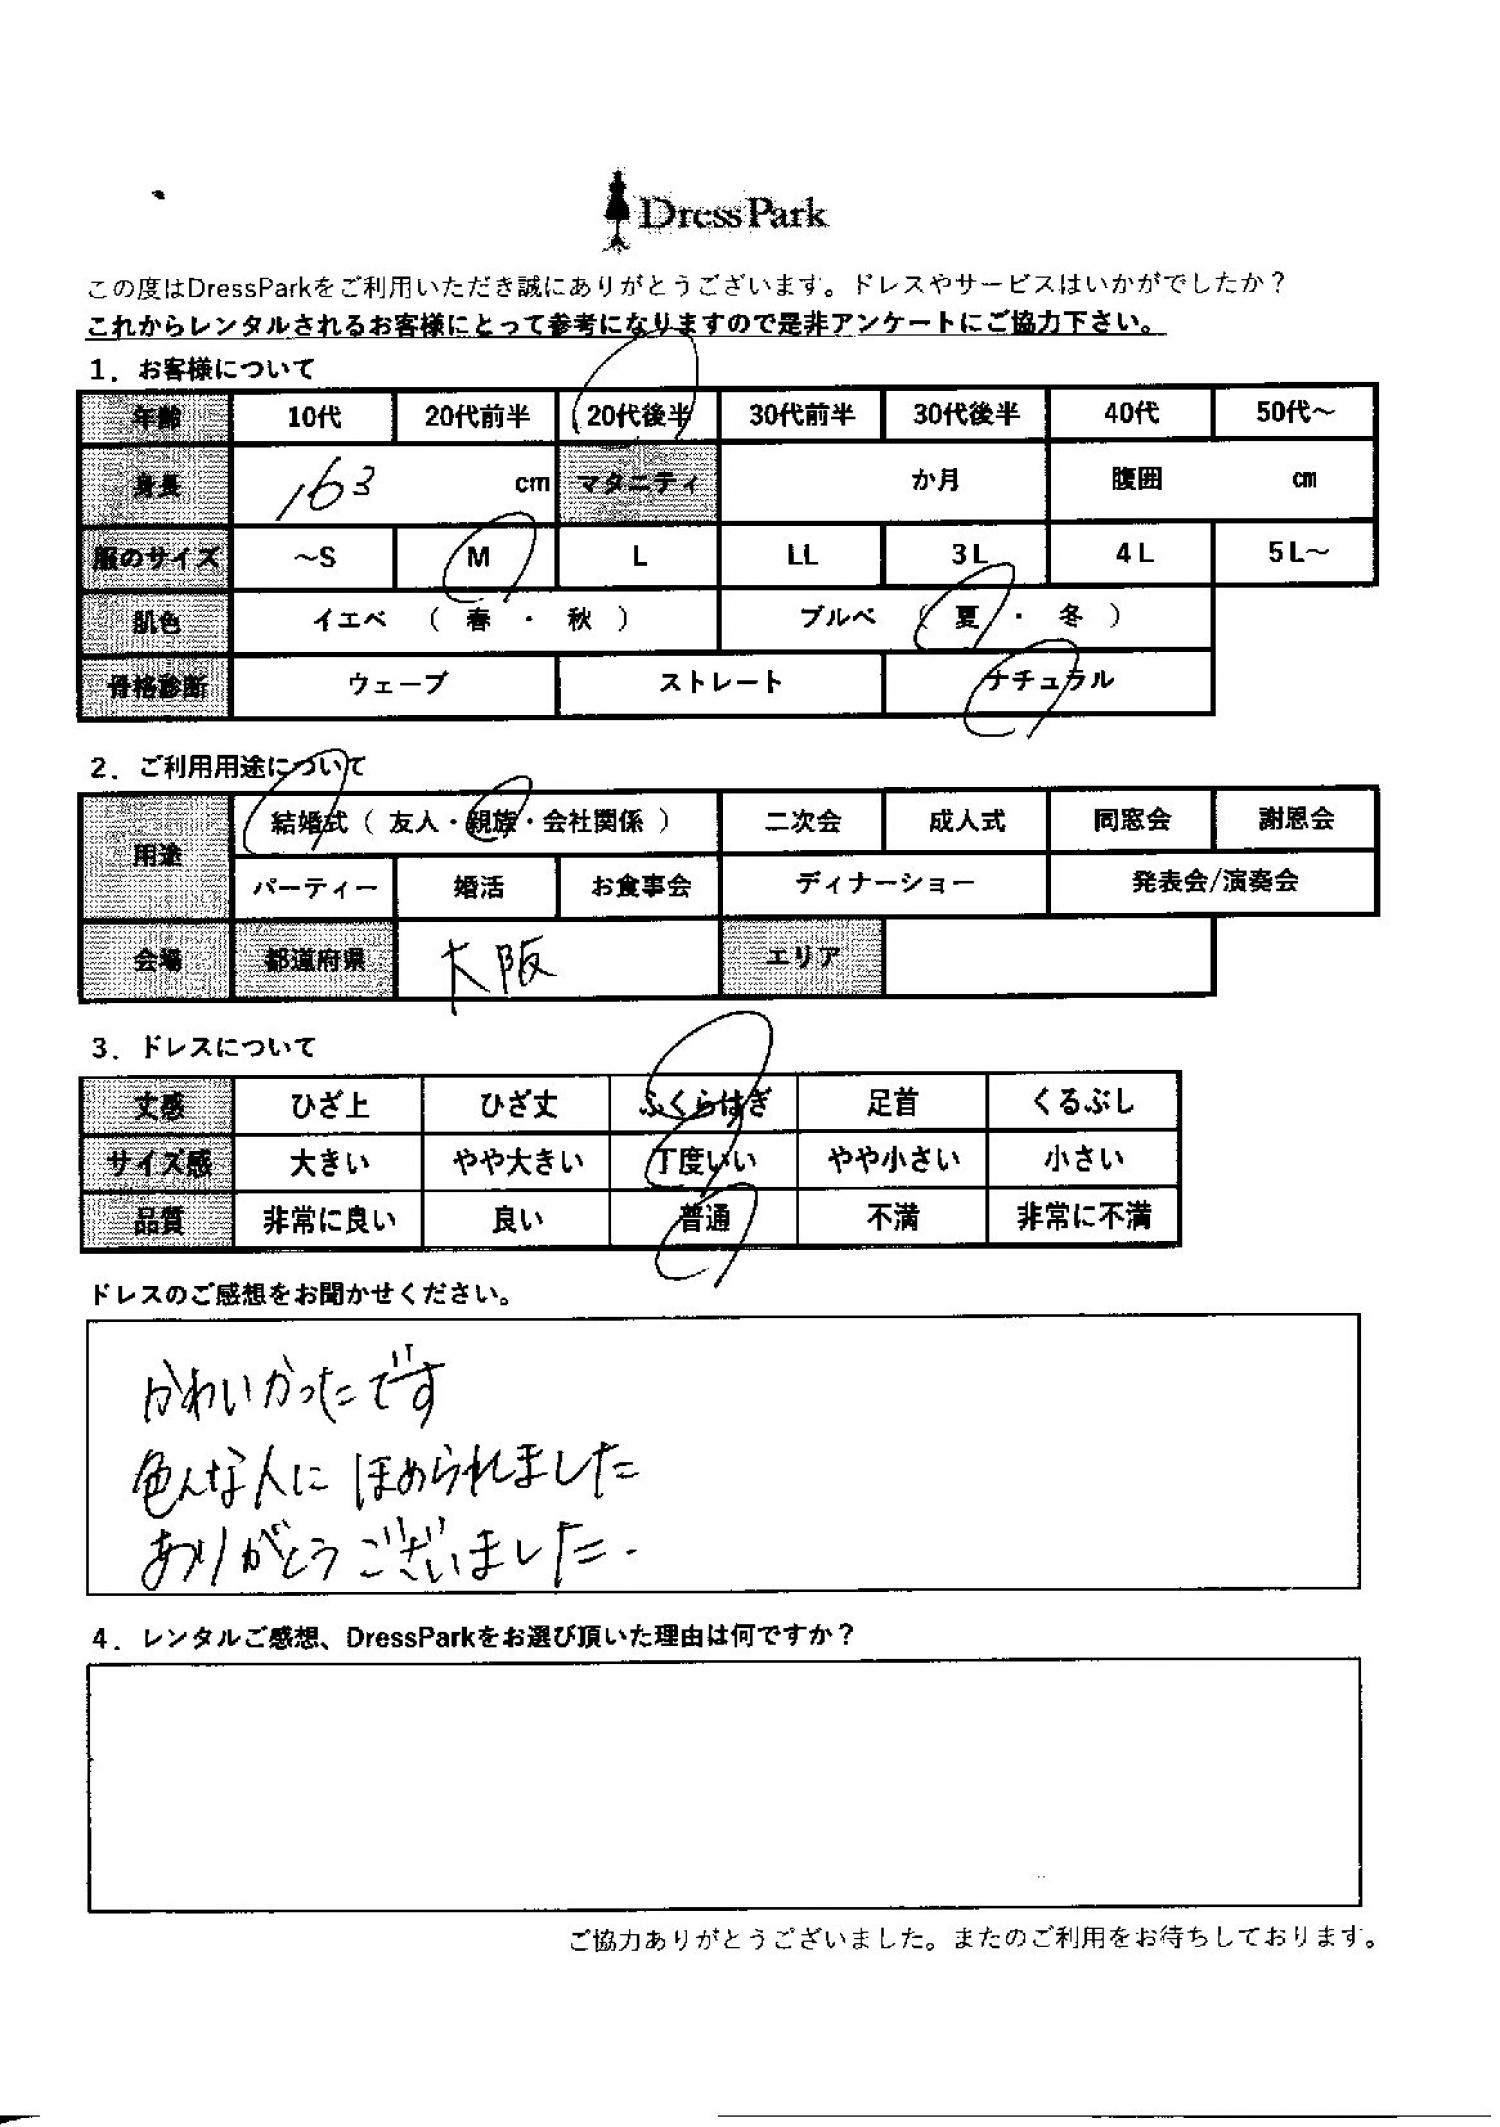 DressPark
この度はDressParkをご利用いただき誠にありがとうございます。ドレスやサービスはいかがでしたか？
これからレンタルされるお客様にとって参考になりますので是非アンケートにご協力下さい。
1．お客様について
年齢 10代 20代前半 20代後半 30代前半 30代後半 40代 50代～
身長 163 cm マタニティ か月 腹囲 cm
服のサイズ ～S M L LL 3L 4L 5L～
肌色 イエベ （ 春 ・ 秋 ） ブルベ （ 夏 ・ 冬 ）
骨格診断 ウェーブ ストレート ナチュラル
2．ご利用用途について
用途 結婚式（ 友人・親族・会社関係 ） 二次会 成人式 同窓会 謝恩会
パーティー 婚活 お食事会 ディナーショー 発表会/演奏会
会場 都道府県 大阪 エリア
3．ドレスについて
丈感 ひざ上 ひざ丈 ふくらはぎ 足首 くるぶし
サイズ感 大きい やや大きい 丁度いい やや小さい 小さい
品質 非常に良い 良い 普通 不満 非常に不満
ドレスのご感想をお聞かせください。
かわいかったです
色んな人にほめられました
ありがとうございました.
4．レンタルご感想、DressParkをお選び頂いた理由は何ですか？
ご協力ありがとうございました。またのご利用をお待ちしております。